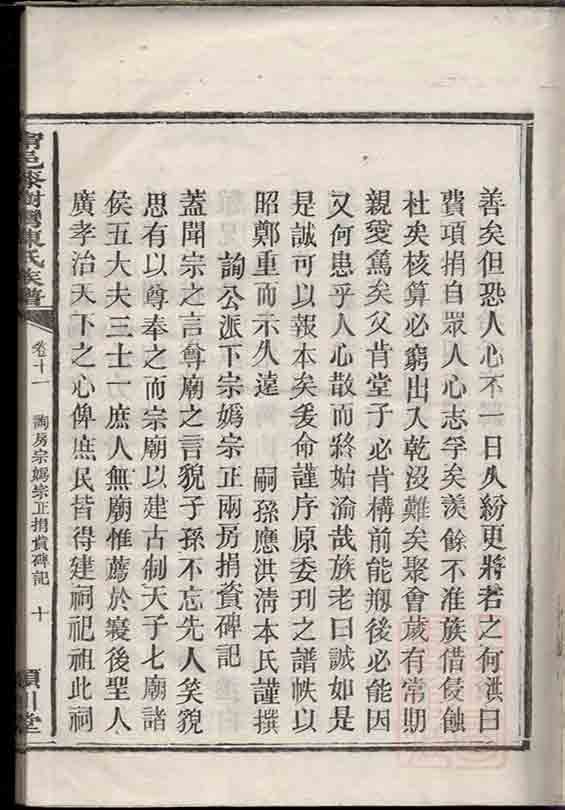 善矣但恐人心不一日久紛更將若之何洪曰
費項捐自眾人心志孚矣羨餘不准族借侵蝕
杜矣核算必窮出入乾沒難矣聚會歲有常期
親愛篤矣父肯堂子必肯構前能剏後必能因
又何患乎人心散而將始渝哉族老曰誠如是
是誠可以報本矣爰命謹序原委刊之譜帙以
昭鄭重而示久遠　嗣孫應洪淸本氏謹撰
詢公派下宗嬀宗正兩房捐貲碑記
蓋聞宗之言尊廟之言貌子孫不忘先人笑貌
思有以尊奉之而宗廟以建古制天子七廟諸
侯五大夫三士一庶人無廟惟薦於寢後聖人
廣孝治天下之心俾庶民皆得建祠祀祖此祠
陳氏族譜
卷十一
詢房宗嬀宗正捐貲碑記
十
潁川堂